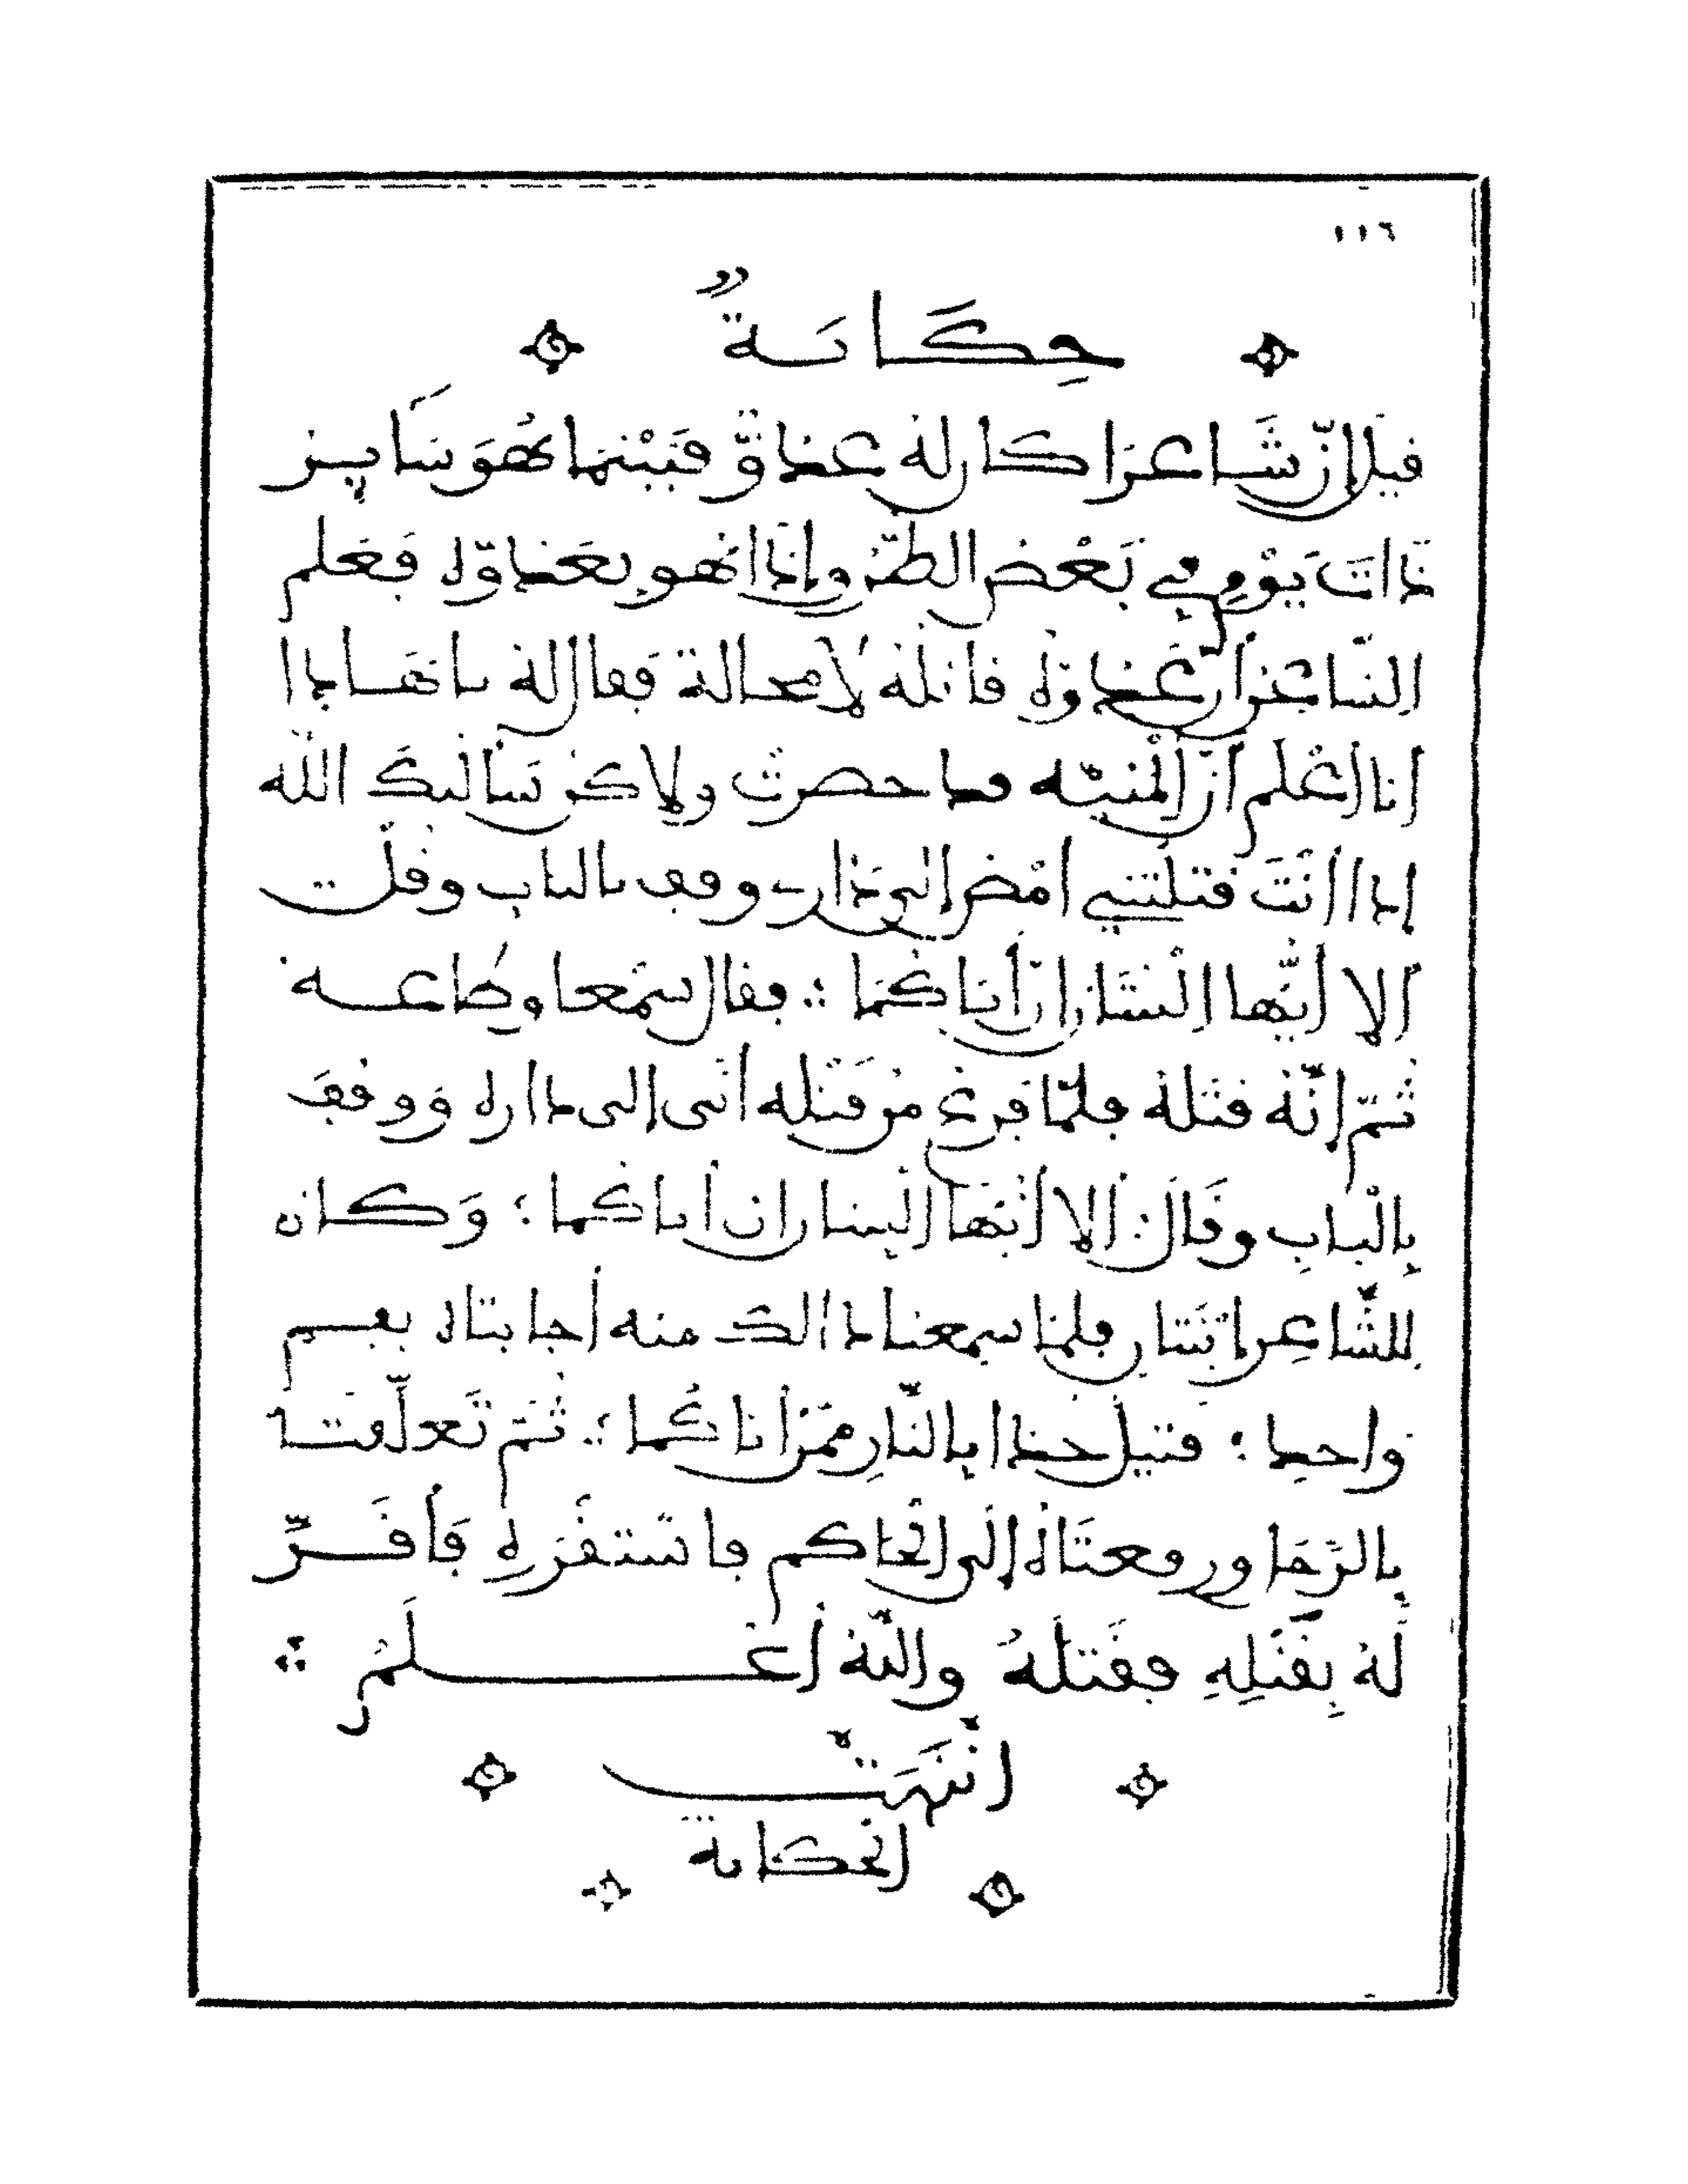 ١١٦
حِكَايَةٌ
قيل إنّ شَاعرَا كان له عدوّ فبَيْنَما هُوَ سَايِر
ذات يَوْمٍ في بَعْض الطّرْو وإذا هو بعَدُوّه فَعَلم
الشّاعرُ أن عَدوّه قاتله لا محالة فقال له يا هَذا
أنا أعْلم أنّ المنيّه قد حضرت ولاكن سَألتك الله
إذا أنْتَ قتلتني امْض إلى دَاري وقف بالباب وقلت
ألا أيّها البنْتَان إن أباكُمَا ؞ فقال سمْعا وطاعه
ثمّ إنّه قتله فلمّا فرغ من قَتْله أتى إلى داره ووقف
بِالْباب وقَال : ألا أيّها البنتان إن أباكما ؛ وَكان
للشَّاعِر ابْنَتان فلمّا سمعتا ذالك منه أجابتاه بفـم
واحد ؛ قتيل خذا بِالثّارِ ممّن أتاكُما ؞ ثمّ تَعلّقتا
بِالرّجَل ورفعتَاه إلى الحَاكم فاسْتقْرَره فَأقَـرّ
لَه بِقَتْلِهِ فقَتلَهُ واللّه أعْـلَمُ ؞
انْتَهَتْ
الحكاية